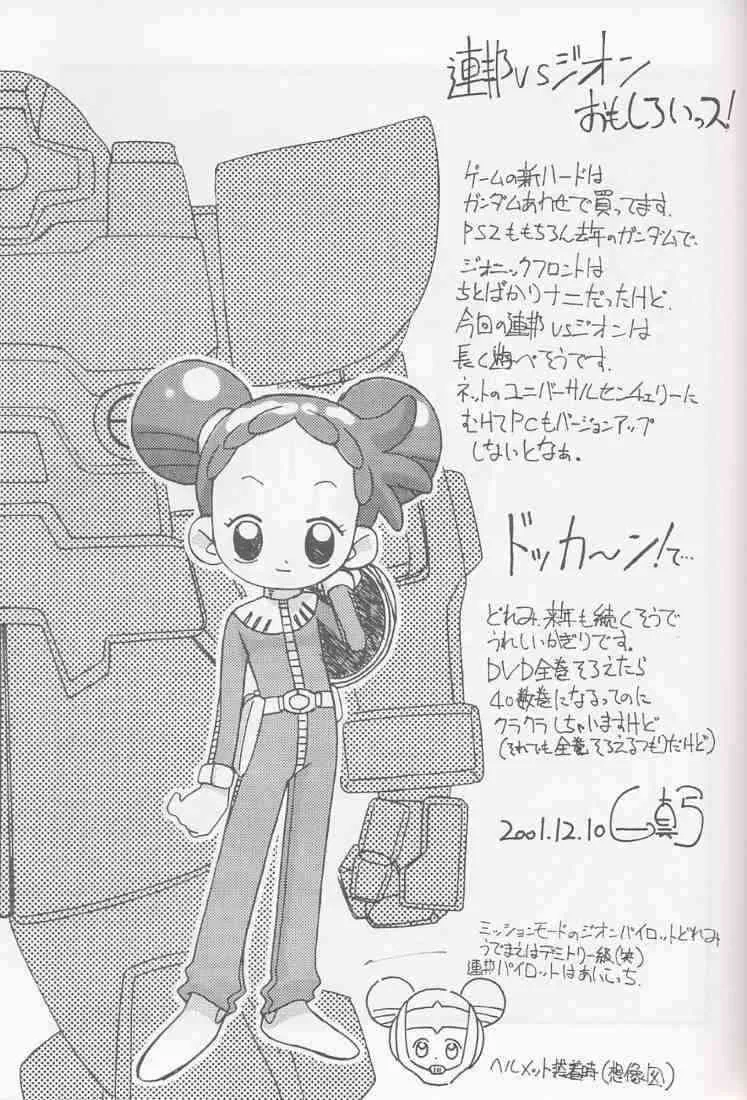 連邦vsジオン
おもしろいっス!
ゲームの新ハードは
ガンダムあわせで買ってます.
PS2ももちろん去年のガンダムで.
ジオニックフロントは
ちとばかりナニだったけど.
今回の連邦vsジオンは
長く遊べそうです.
ネットのユニバーサルセンチュリーに
むけてPCもバージョンアップ
しないとなぁ。
ドッカ〜ン!で…
どれみ、来年も続くそうで
うれしいかぎりです。
DVD全巻そろえたら
40数巻になるってのに
クラクラしちゃいますけど
(それでも全巻そろえるつもりだけど)
2001.12.10
ミッションモードのジオンパイロットどれみ
うでまえはデミトリー級(笑)
連邦パイロットはあいこっち.
ヘルメット装着時(想像図)